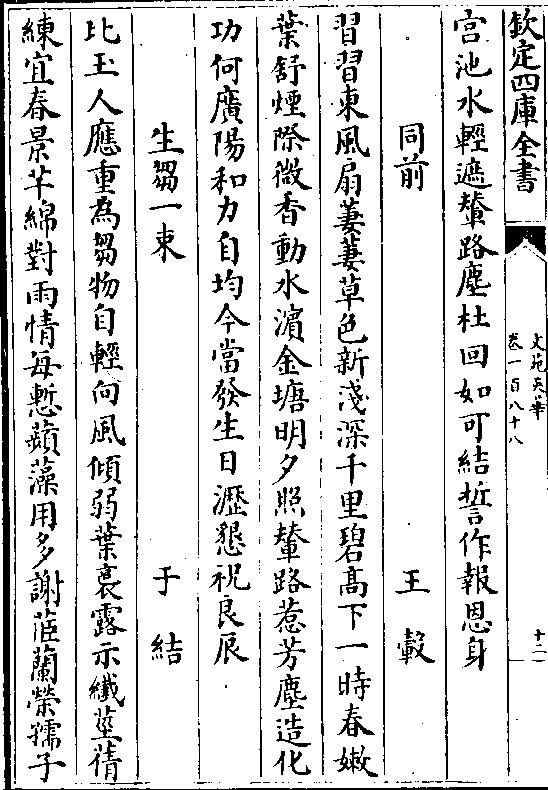 欽定四庫全書
文苑英華
卷一百八十八
十二
宫池水輕遮輦路塵杜回如可結誓作報恩身
同前 王轂
習習東風扇萋萋草色新淺深千里碧高下一時春嫩
葉舒煙際微香動水濵金塘明夕照輦路惹芳塵造化
功何廣陽和力自均今當發生日瀝懇祝良辰
生芻一束 于結
比玉人應重為芻物自輕向風傾弱葉裛露示纎莖蒨
練宜春景芊綿對雨情每慙蘋藻用多謝茝蘭榮孺子